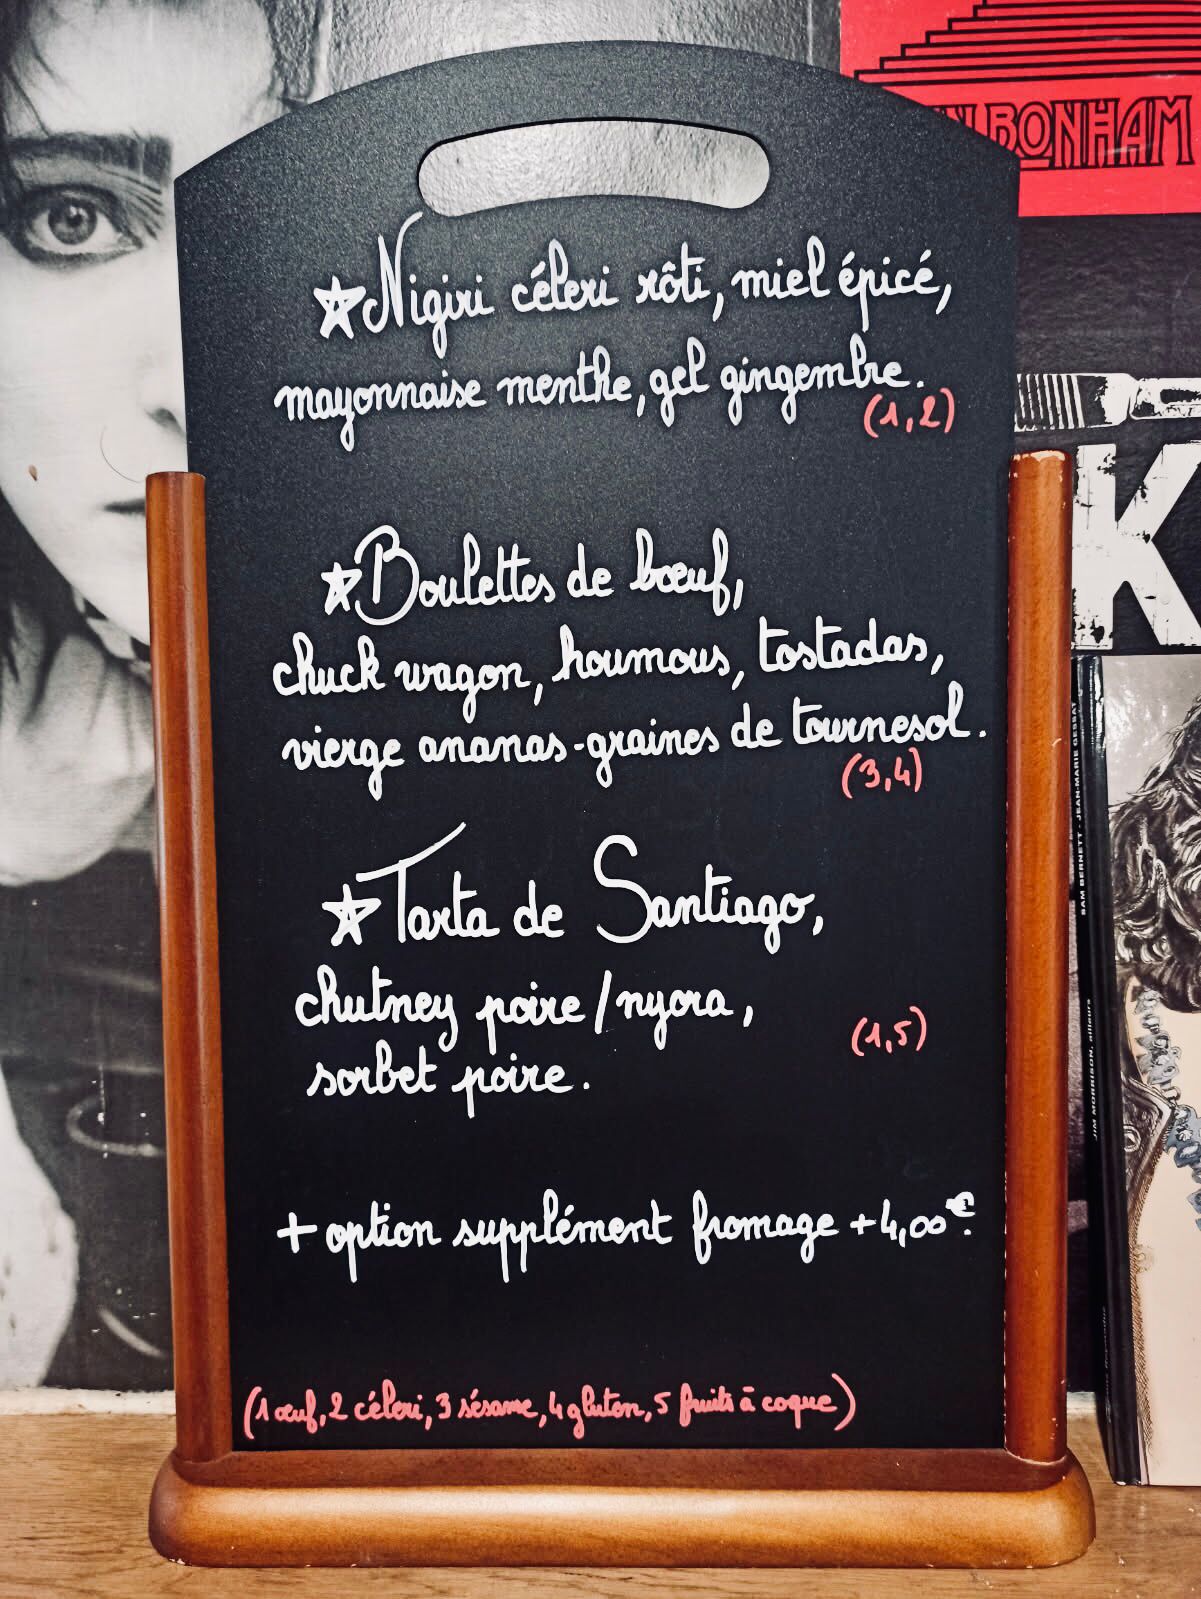 BONHAM
☆ Nigiri céleri rôti, miel épicé,
mayonnaise menthe, gel gingembre.
(1,2)
☆ Boulettes de bœuf,
chuck wagon, houmous, tostadas,
vierge ananas-graines de tournesol.
(3,4)
☆ Tarta de Santiago,
chutney poire/nyora,
(1,5)
sorbet poire.
+ option supplément fromage +4,00€.
(1 œuf, 2 céleri, 3 sésame, 4 gluten, 5 fruits à coque)
K
SAM BERNETT - JEAN-MARIE GESBAT
JIM MORRISON, ailleurs